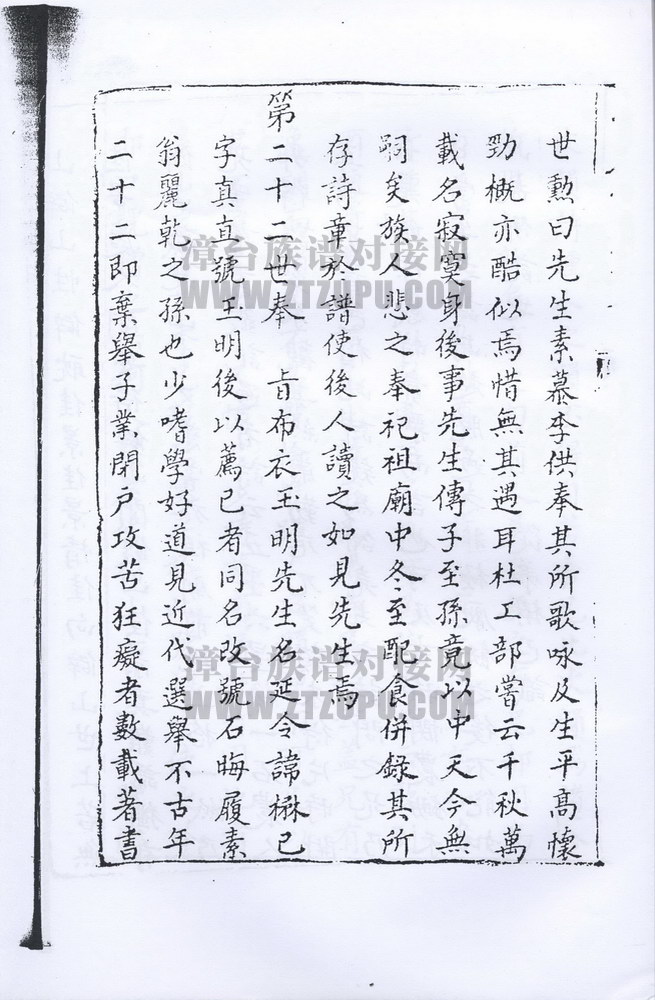 世勲曰先生素慕李供奉其所歌咏及生平髙懷
勁概亦酷似焉惜無其遇耳杜工部嘗云千秋萬
載名寂寞身後事先生傳子至孫竟以中天今無
嗣矣族人悲之奉祀祖廟中冬至配食併錄其所
存詩章於譜使後人讀之如見先生焉
第二十二世奉　旨布衣玉明先生名延令諱楙已
字真直號玉明後以薦已者同名改號石晦履素
翁麗乾之孫也少嗜學好道見近代選舉不古年
二十二即棄舉子業閉戶攻苦狂癡者數載著書
漳台族谱对接网
WWW.ZTZUPU.COM
漳台族谱对接网
WWW.ZTZUPU.COM